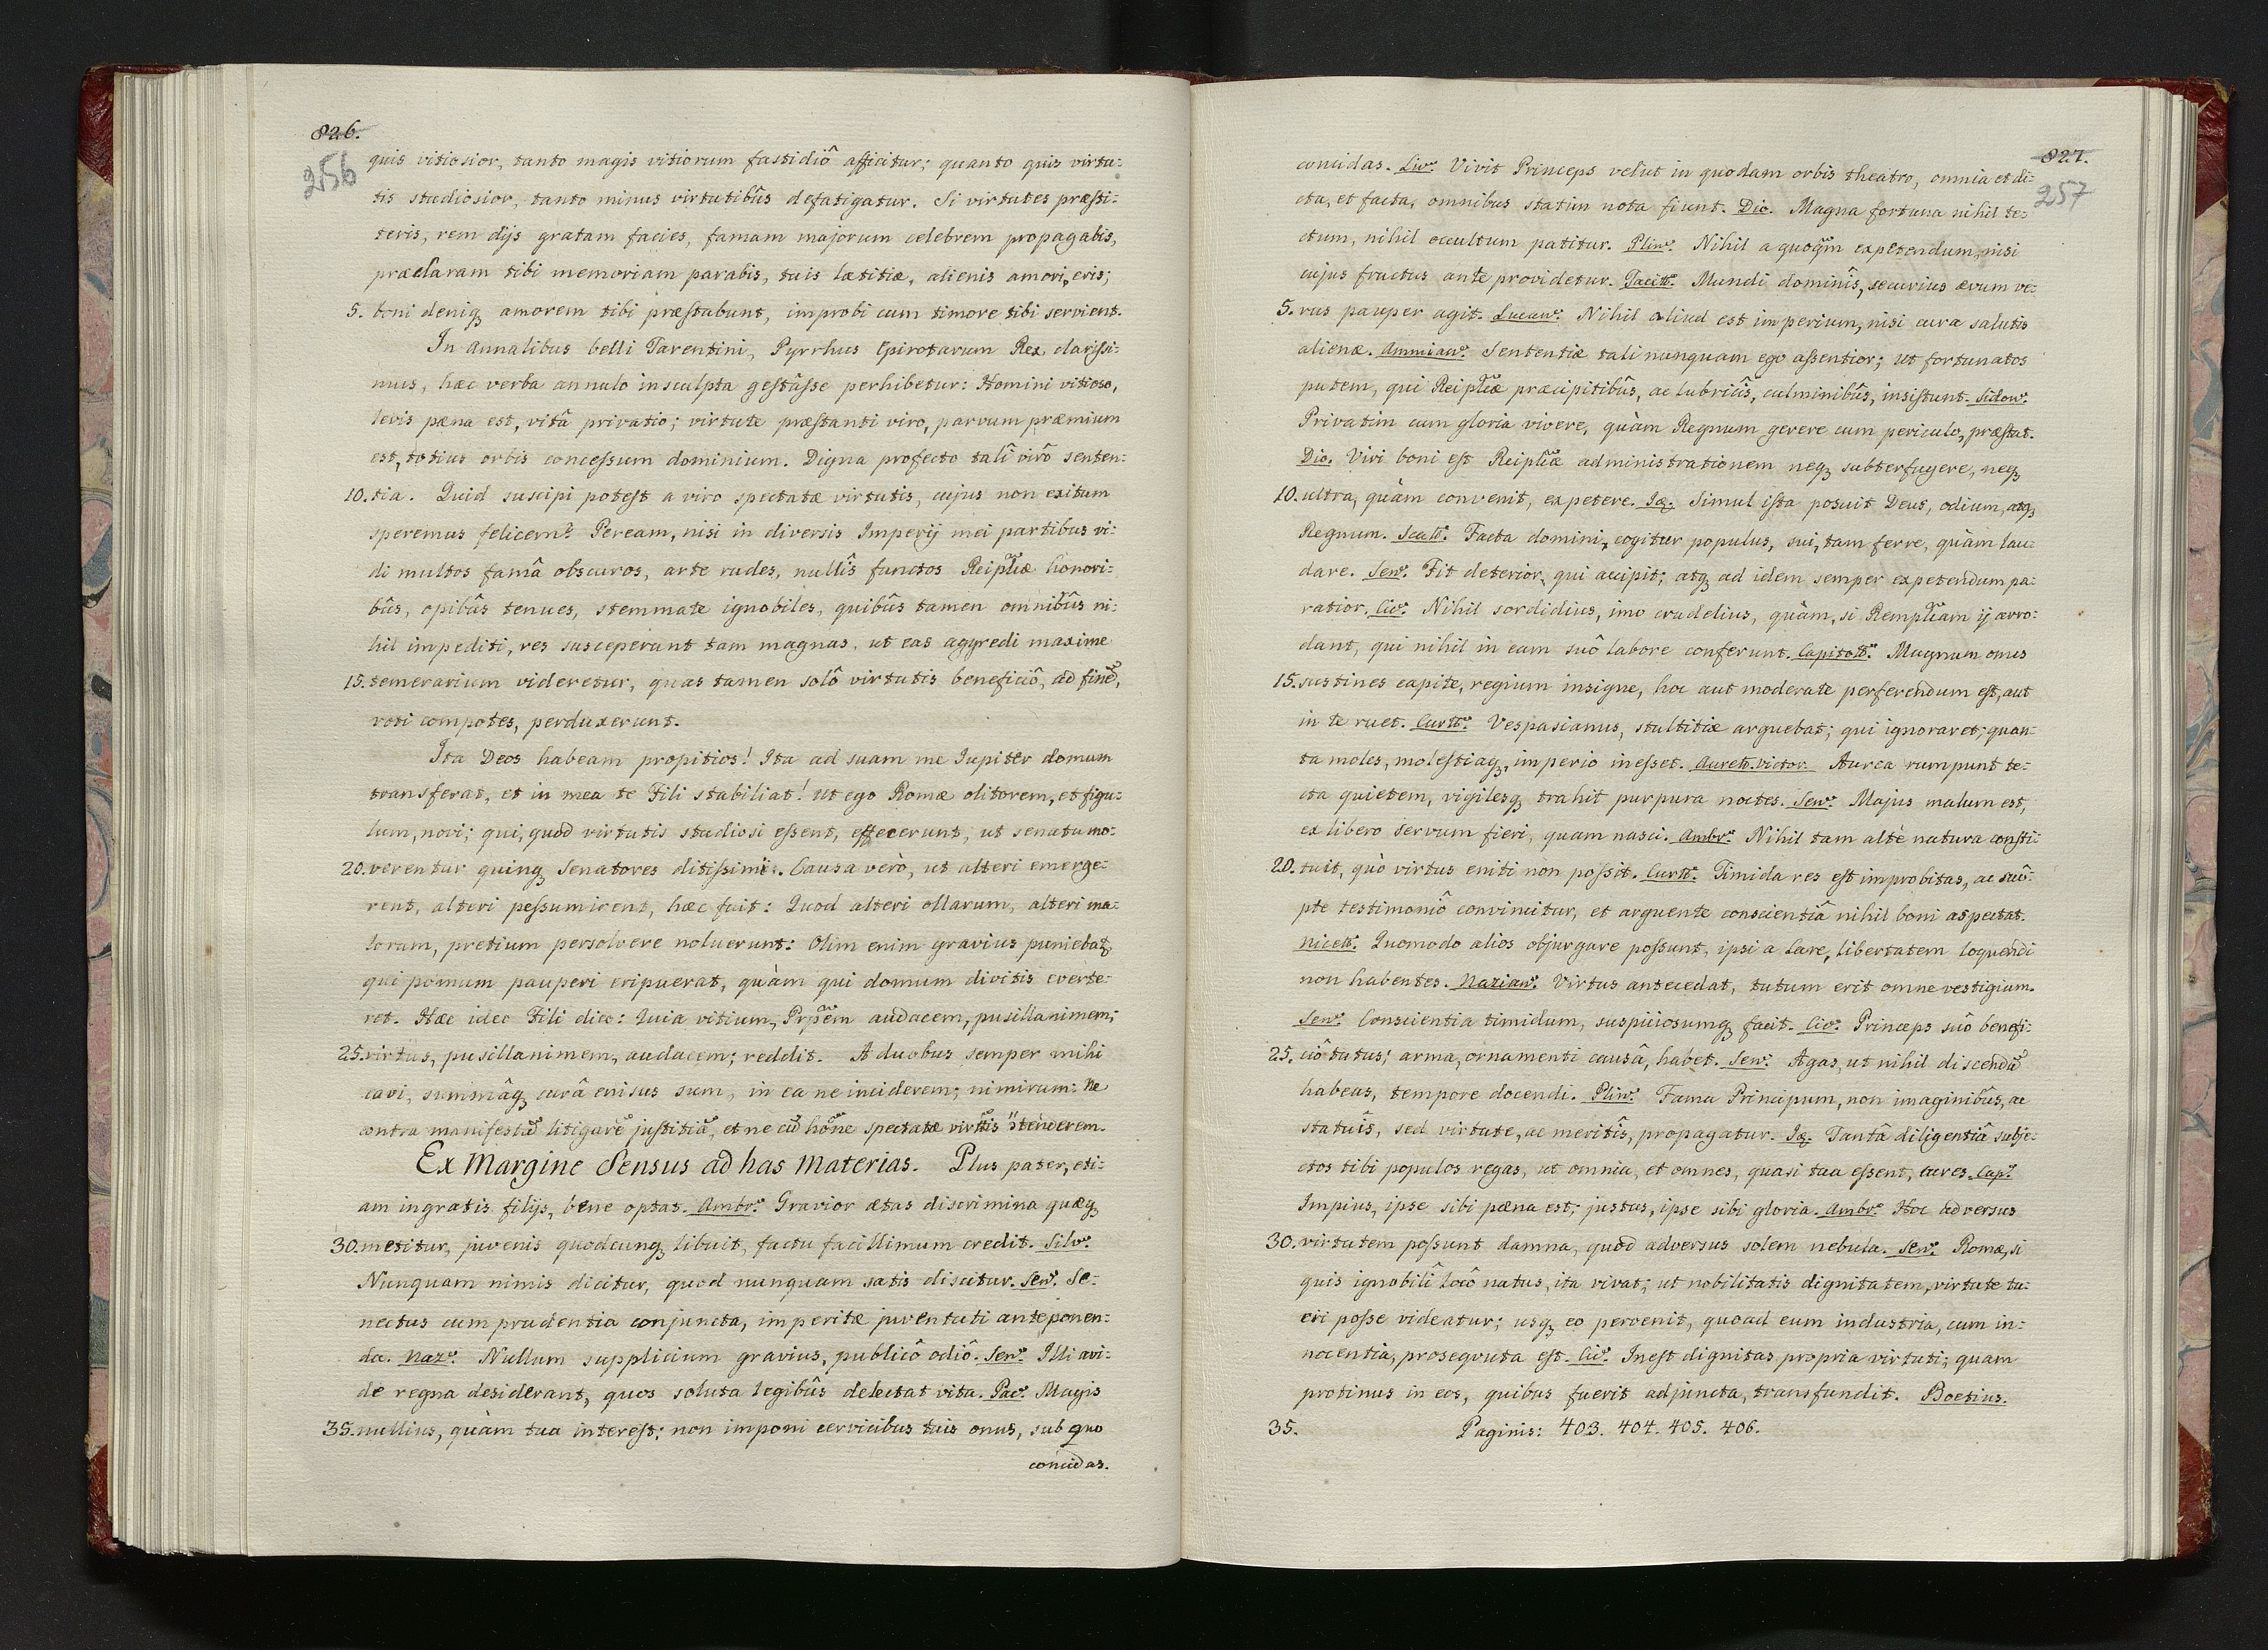 826.
256
quis vitiosior, tanto magis vitiorum fastidiô afficitur; quanto quis virtu:
tis studiosior, tanto minus virtutibûs defatigatur. Si virtutes præsti:
teris, rem dijs gratam facies, famam majorum celebrem propagabis,
præclaram tibi memoriam parabis, tuis lætitiæ, alienis amori, eris;
5. boni deniq, amorem tibi præstabunt, improbi cum timore tibi servient.
In annalibus belli Tarentini, Pyrrhus Epirotarum Rex clarissi:
mus, hæc verba annulo insculpta gestâsse perhibetur: Homini vitioso,
levis pæna est, vitâ privatio; virtute præstanti viro, parvum præmium
est, totius orbis concessum dominium. Digna profecto talî virô senten:
10. tia. Quid suscipi potest a viro spectatæ virtutis, cujus non exitum
speremus felicem? Peream, nisi in diversis Imperij mei partibus vi:
di multos famâ obscuros, arte rudes, nullîs functos Reiplicæ honori:
bûs, opibûs tenues, stemmate ignobiles, quibûs tamen omnibûs ni:
hil impediti, res susceperunt tam magnas, ut eas aggredi maxime
15. temerarium videretur, quas tamen solô virtutis beneficiô, ad finẽ,
voti compotes, perduxerunt.
Ita Deos habeam propitios! Ita ad suam me Jupiter domum
transferat, et in mea te Fili stabiliat! Ut ego Romæ olitorem, et figu:
lum, novi; qui, quod virtutis studiosi essent, effecerunt, ut senatu mo:
20. verentur quinq, Senatores ditissimi. Causa verò, ut alteri emerge:
rent, alteri pessumirent, hæc fuit: Quod alteri ollarum, alteri ma:
lorum, pretium persolvere noluerunt: Olim enim gravius puniebat,
qui pomum pauperi eripuerat, quàm qui domum divitis everte:
ret. Hæc ideo Fili dico: Quia vitium, Prpẽm audacem, pusillanimem;
25. virtus, pusillanimem, audacem; reddit. A duobus semper mihi
cavi, summâq, curâ enisus sum, in ea ne inciderem; nimirum: Ne
contra manifestã litigarẽ justitiã, et ne cũ hõne spectatæ virtis ''tenderem.
Ex Margine Sensus ad has Materias. Plus pater, eti:
am ingratis filijs, bene optat. Ambr. Gravior ætas discrimina quæq,
30. metitur, juvenis quodcunq, libuit, factu facillimum credit. Silv.
Nunquam nimis dicitur, quod nunquam satis discitur. Sen. Se:
nectus cum prudentia conjuncta, imperitæ juventuti anteponen:
da. Naz. Nullum supplicium gravius, publicô odiô. Sen. Illi avi:
de regna desiderant, quos soluta legibûs delectat vita. Pac. Magis
35. nullius, quàm tua interest; non imponi cervicibus tuis onus, sub quo
concidas.
827.
257
concidas. Liv. Vivit Princeps velut in quodam orbis theatro, omnia et di:
cta, et facta, omnibus statim nota fiunt. Dio. Magna fortuna nihil te:
ctum, nihil occultum patitur. Plin. Nihil a quoqm expetendum, nisi
cujus fructus ante providetur. Tacitt. Mundi dominîs, securius ævum ve:
5. rus pauper agit. Lucan. Nihil aliud est imperium, nisi cura salutis
alienæ. Ammian. Sententiæ tali nunquam ego assentior; ut fortunatos
putem, qui Reiplicæ præcipitibûs, ac lubricîs, culminibûs, insistunt. Sidon.
Privatim cum gloria vivere, quàm Regnum gerere cum periculo, præstat.
Dio. Viri boni est Reiplicæ administrationem neq, subterfugere, neq,
10. ultra, quàm convenit, expetere. Iq. Simul ista posuit Deus, odium, atq,
Regnum. Scatt. Facta domini, cogitur populus, sui, tam ferre, quàm lau:
dare. Sen. Fit deterior, qui accipit; atq, ad idem semper expetendum pa:
ratior. Cic. Nihil sordidius, imo crudelius, quàm, si Remplicam ij arro:
dant, qui nihil in eam suô labore conferunt. Capitoll. Magnum onus
15. sustines capite, regium insigne, hoc aut moderate perferendum est, aut
in te ruet. Curtt. Vespasianus, stultitiæ arguebat; qui ignoraret; quan:
ta moles, molestiaq, imperio inesset. Aurell. victor. Aurea rumpunt te:
cta quietem, vigilesq, trahit purpura noctes. Sen. Majus malum est,
ex libero servum fieri, quam nasci. Ambr. Nihil tam altè natura consti:
20. tuit, quò virtus eniti non possit. Curtt. Timida res est improbitas, ac suô:
pte testimoniô convincitur, et arguente conscientiâ nihil boni aspectat.
Nicett. Quomodo alios objurgare possunt, ipsi a Lare, libertatem loquendi
non habentes. Nazian. Virtus antecedat, tutum erit omne vestigium.
Sen. Conscientia timidum, suspiciosumq, facit. Cic. Princeps suô benefi:
25. ciô tutus; arma, ornamenti causâ, habet. Sen. Agas, ut nihil discendũ
habeas, tempore docendi. Plin. Fama Principum, non imaginibûs, ac
statuîs, sed virtute, ac meritîs, propagatur. Iq. Tantâ diligentiâ subje:
ctos tibi populos regas, ut omnia, et omnes, quasi tua essent, cures. Cap.
Impius, ipse sibi pæna est; justus, ipse sibi gloria. Ambr. Hoc adversus
30. virtutem possunt damna, quod adversus solem nebula. Sen. Romæ, si
quis ignobilî locô natus, ita vivat; ut nobilitatis dignitatem, virtute tu:
eri posse videatur; usq, eo pervenit, quoad eum industria, cum in:
nocentia, prosequuta est. Cic. Inest dignitas propria virtuti; quam
protinus in eos, quibus fuerit adjuncta, transfundit. Boetius.
35. Paginis: 403. 404. 405. 406.